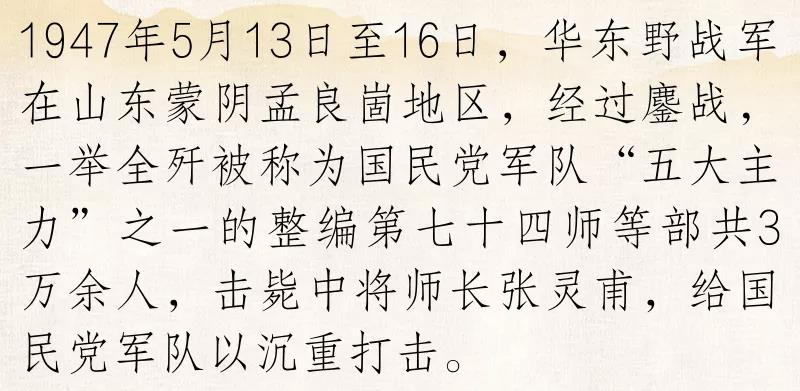 1947年5月13日至16日，华东野战军
在山东蒙阴孟良崮地区，经过鏖战，
一举全歼被称为国民党军队“五大主
力”之一的整编第七十四师等部共3
万余人，击毙中将师长张灵甫，给国
民党军队以沉重打击。